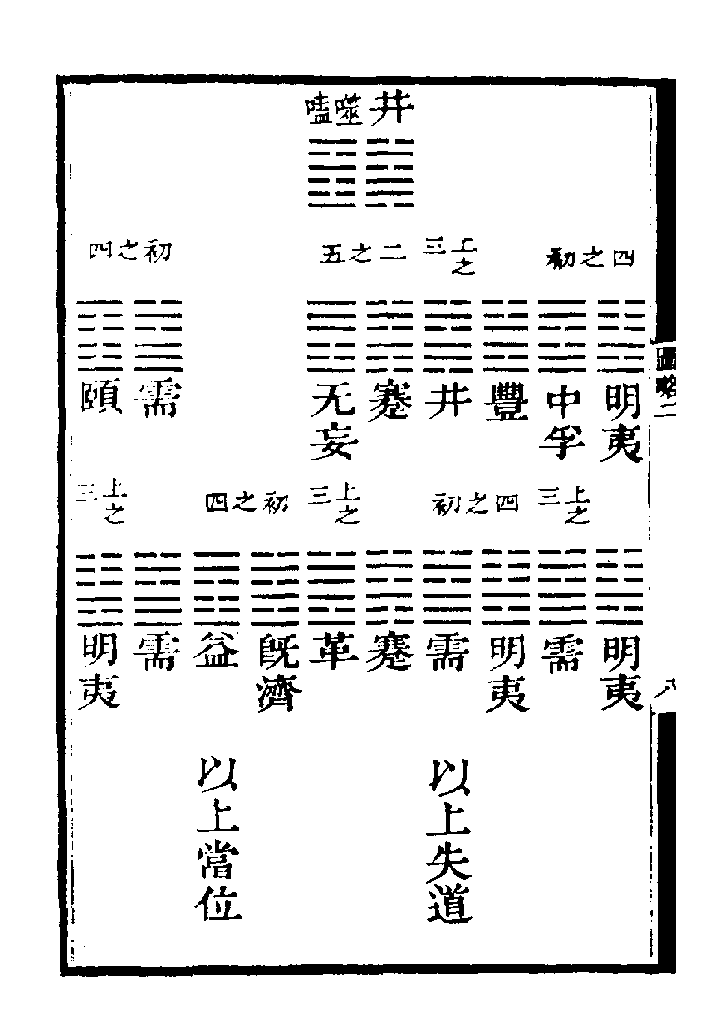 井 噬嗑
四之初 上之三 二之五 初之四
明夷 中孚 豐 井 蹇 无妄 需 頤
上之三 四之初 上之三 初之四 上之三
明夷 需 明夷 需 蹇 革 既濟 益 需 明夷
以上失道 以上當位
圖略二
八